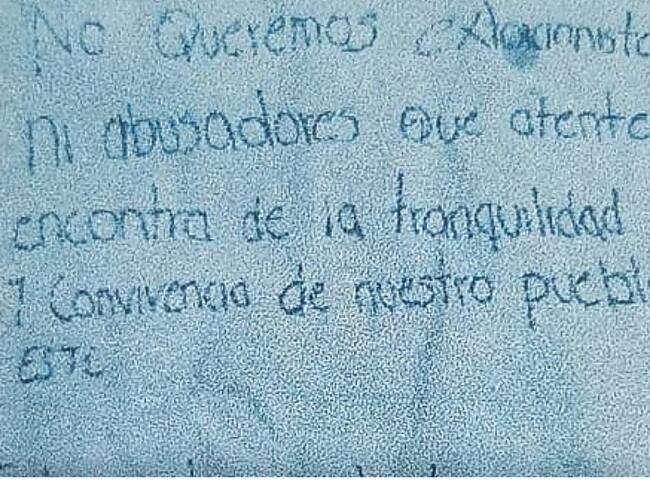 No Queremos extorcioniste
ni abusadores que atente
encontra de la tranquilidad
y Convivencia de nuestro pueblo
ESTE